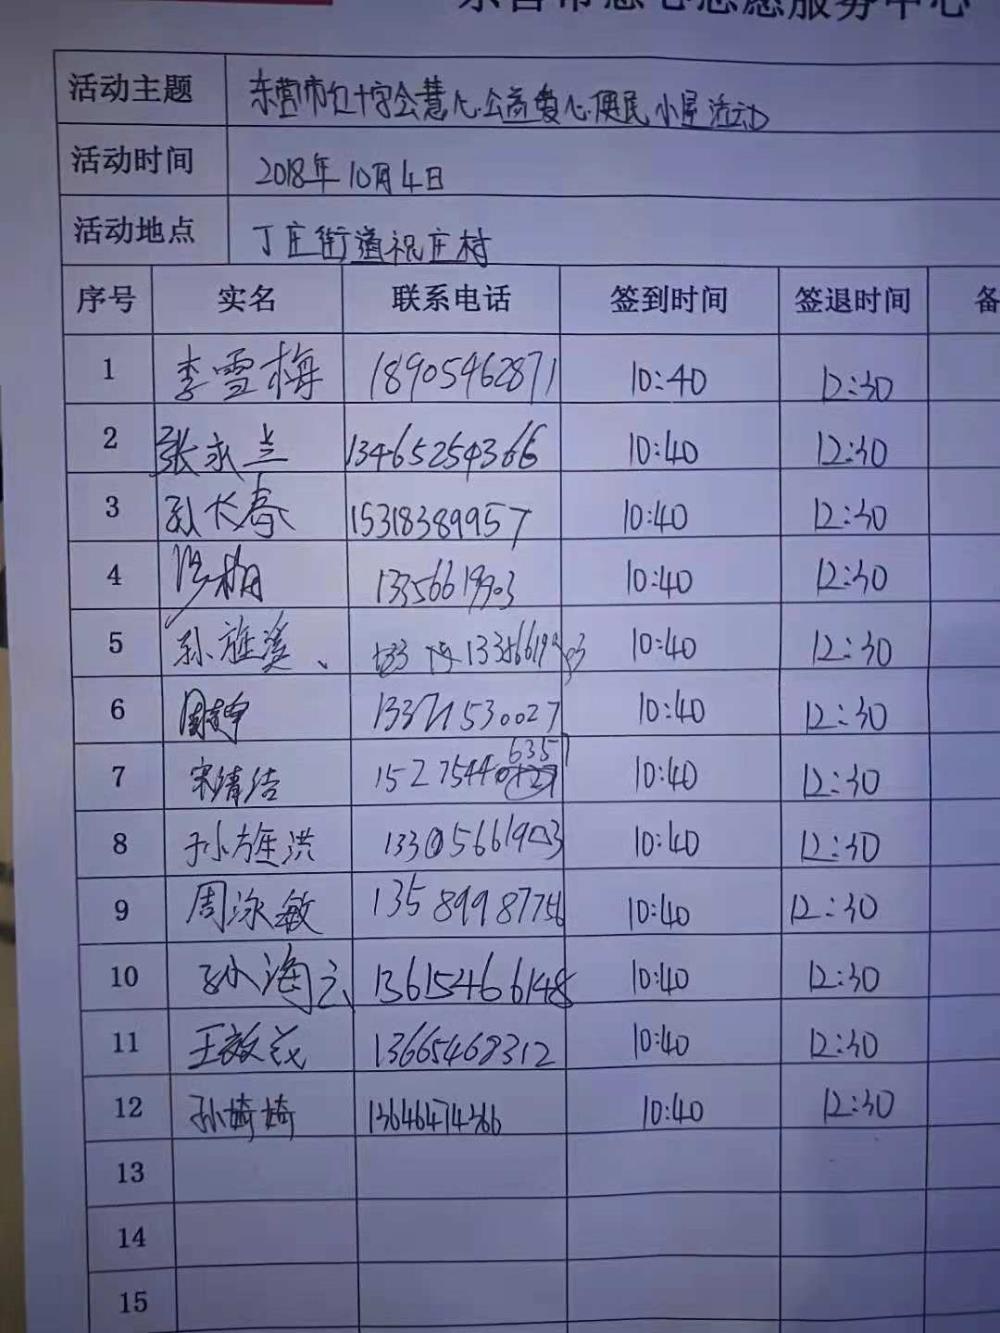 活动主题 东营市红十字会慧心公益爱心便民小屋活动
活动时间 2018年10月4日
活动地点 丁庄街道祝庄村
序号 实名 联系电话 签到时间 签退时间 备
1 李雪梅 18905462871 10:40 12:30
2 张永兰 13465254366 10:40 12:30
3 孙长春 15318389957 10:40 12:30
4 13356619903 10:40 12:30
5 孙旌溪、 10:40 12:30
6 13371530027 10:40 12:30
7 宋清洁 10:40 12:30
8 孙旌洪 10:40 12:30
9 周泳敏 13589987756 10:40 12:30
10 孙海云 13615466148 10:40 12:30
11 王敏 13665468312 10:40 12:30
12 孙婍婍 13646474366 10:40 12:30
13
14
15